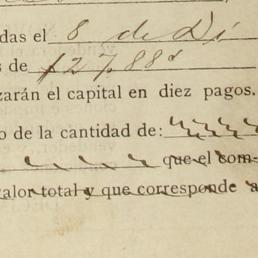 das el 8 de Di
s de $127.88
zarán el capital en diez pagos.
o de la cantidad de:
que el com-
alor total y que corresponde a